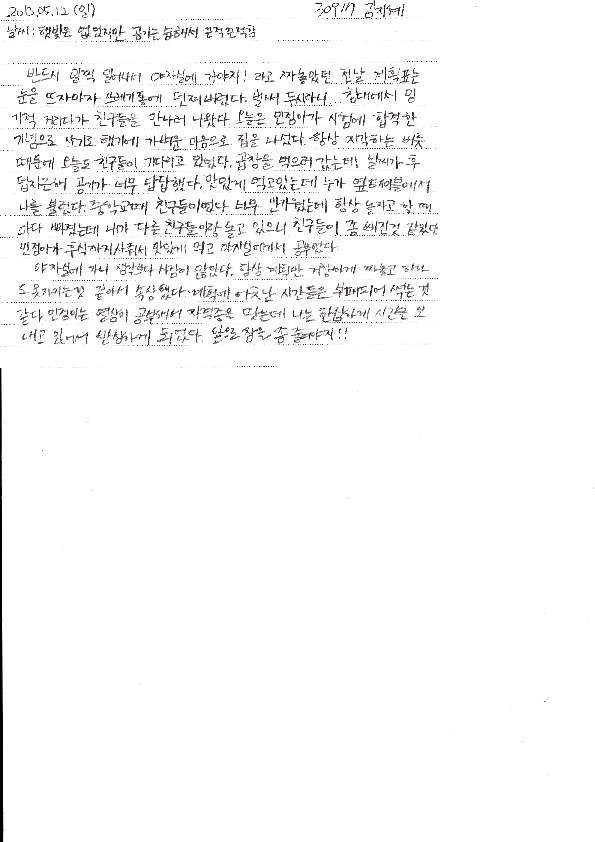 2013.05.12 (일) 30917 김지혜
날씨 : 햇빛은 없었지만 공기는 습해서 끈적끈적함
반드시 일찍 일어나서 야자실에 가야지! 라고 짜놓았던 전날 계획표는
눈을 뜨자마자 쓰레기통에 던져버렸다. 벌써 두시라니.. 침대에서 밍
기적 거리다가 친구들을 만나러 나왔다. 오늘은 민정이가 시험에 합격한
기념으로 사기로 했기에 가벼운 마음으로 집을 나섰다. 항상 지각하는 버릇
때문에 오늘도 친구들이 기다리고 있었다. 곱창을 먹으러 갔는데! 날씨가 후
덥지근해 공기가 너무 답답했다. 맛있게 먹고있는데 누가 옆테이블에서
나를 불렀다. 중학교때 친구들이었다. 너무 반가웠는데 항상 놀자고 할 때
마다 빠졌는데 내가 다른 친구들이랑 놀고 있으니 친구들이 좀 삐진것 같았다.
민정이가 후식까지사줘서 맛있게 먹고 야자실에가서 공부했다.
야자실에 가니 생각보다 사람이 많았다. 항상 계획만 거창하게 짜놓고 하나
도 못지키는것 같아서 속상했다. 계획에 어긋난 시간들은 부패되어 썩는 것
같다. 민정이는 열심히 공부해서 자격증을 땄는데 나는 한심하게 시간을 보
내고 있어서 반성하게 되었다. 앞으로 잠을 좀 줄여야지!!